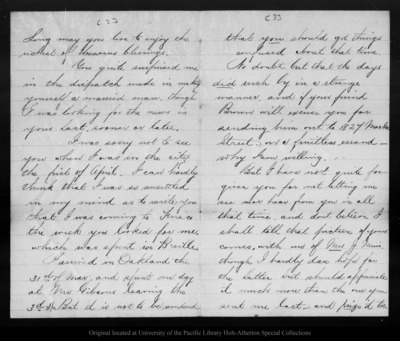 (2)
Long may you live to enjoy the
richest of Heavens blessings.
You quite surprised me
in the dispatch made in making
yourself a married man, though
I was looking for the news in
your last, sooner or later.
I was sorry not to see
you when I was in the city
the first of April. I can hardly
think that I was so unsettled
in my mind as to write you
that I was coming to
the week you looked for me,
which was spent in
I arrived in Oakland the
31st of Mar, and spent one day
at Mrs Gibsons leaving the
3rd. But it is not to be wondered
(3)
that you should get things
confused about that time.
No doubt but that the days
did rush by in a strange
manner, and if your friend
Brown will excuse you for
sending him out to 1827 Market
street, on a fruitless errand
why I am willing.
But I have not quite for
given you for not letting me
see or hear from you in all
that time, and don't believe I
shall till that picture of yours
comes, with one of Mrs J. Muir
though I hardly dare hope for
the latter but should appreciate
it much more than the one you
sent me last and
Original located at University of the Pacific Library Holt-Atherton Special Collections